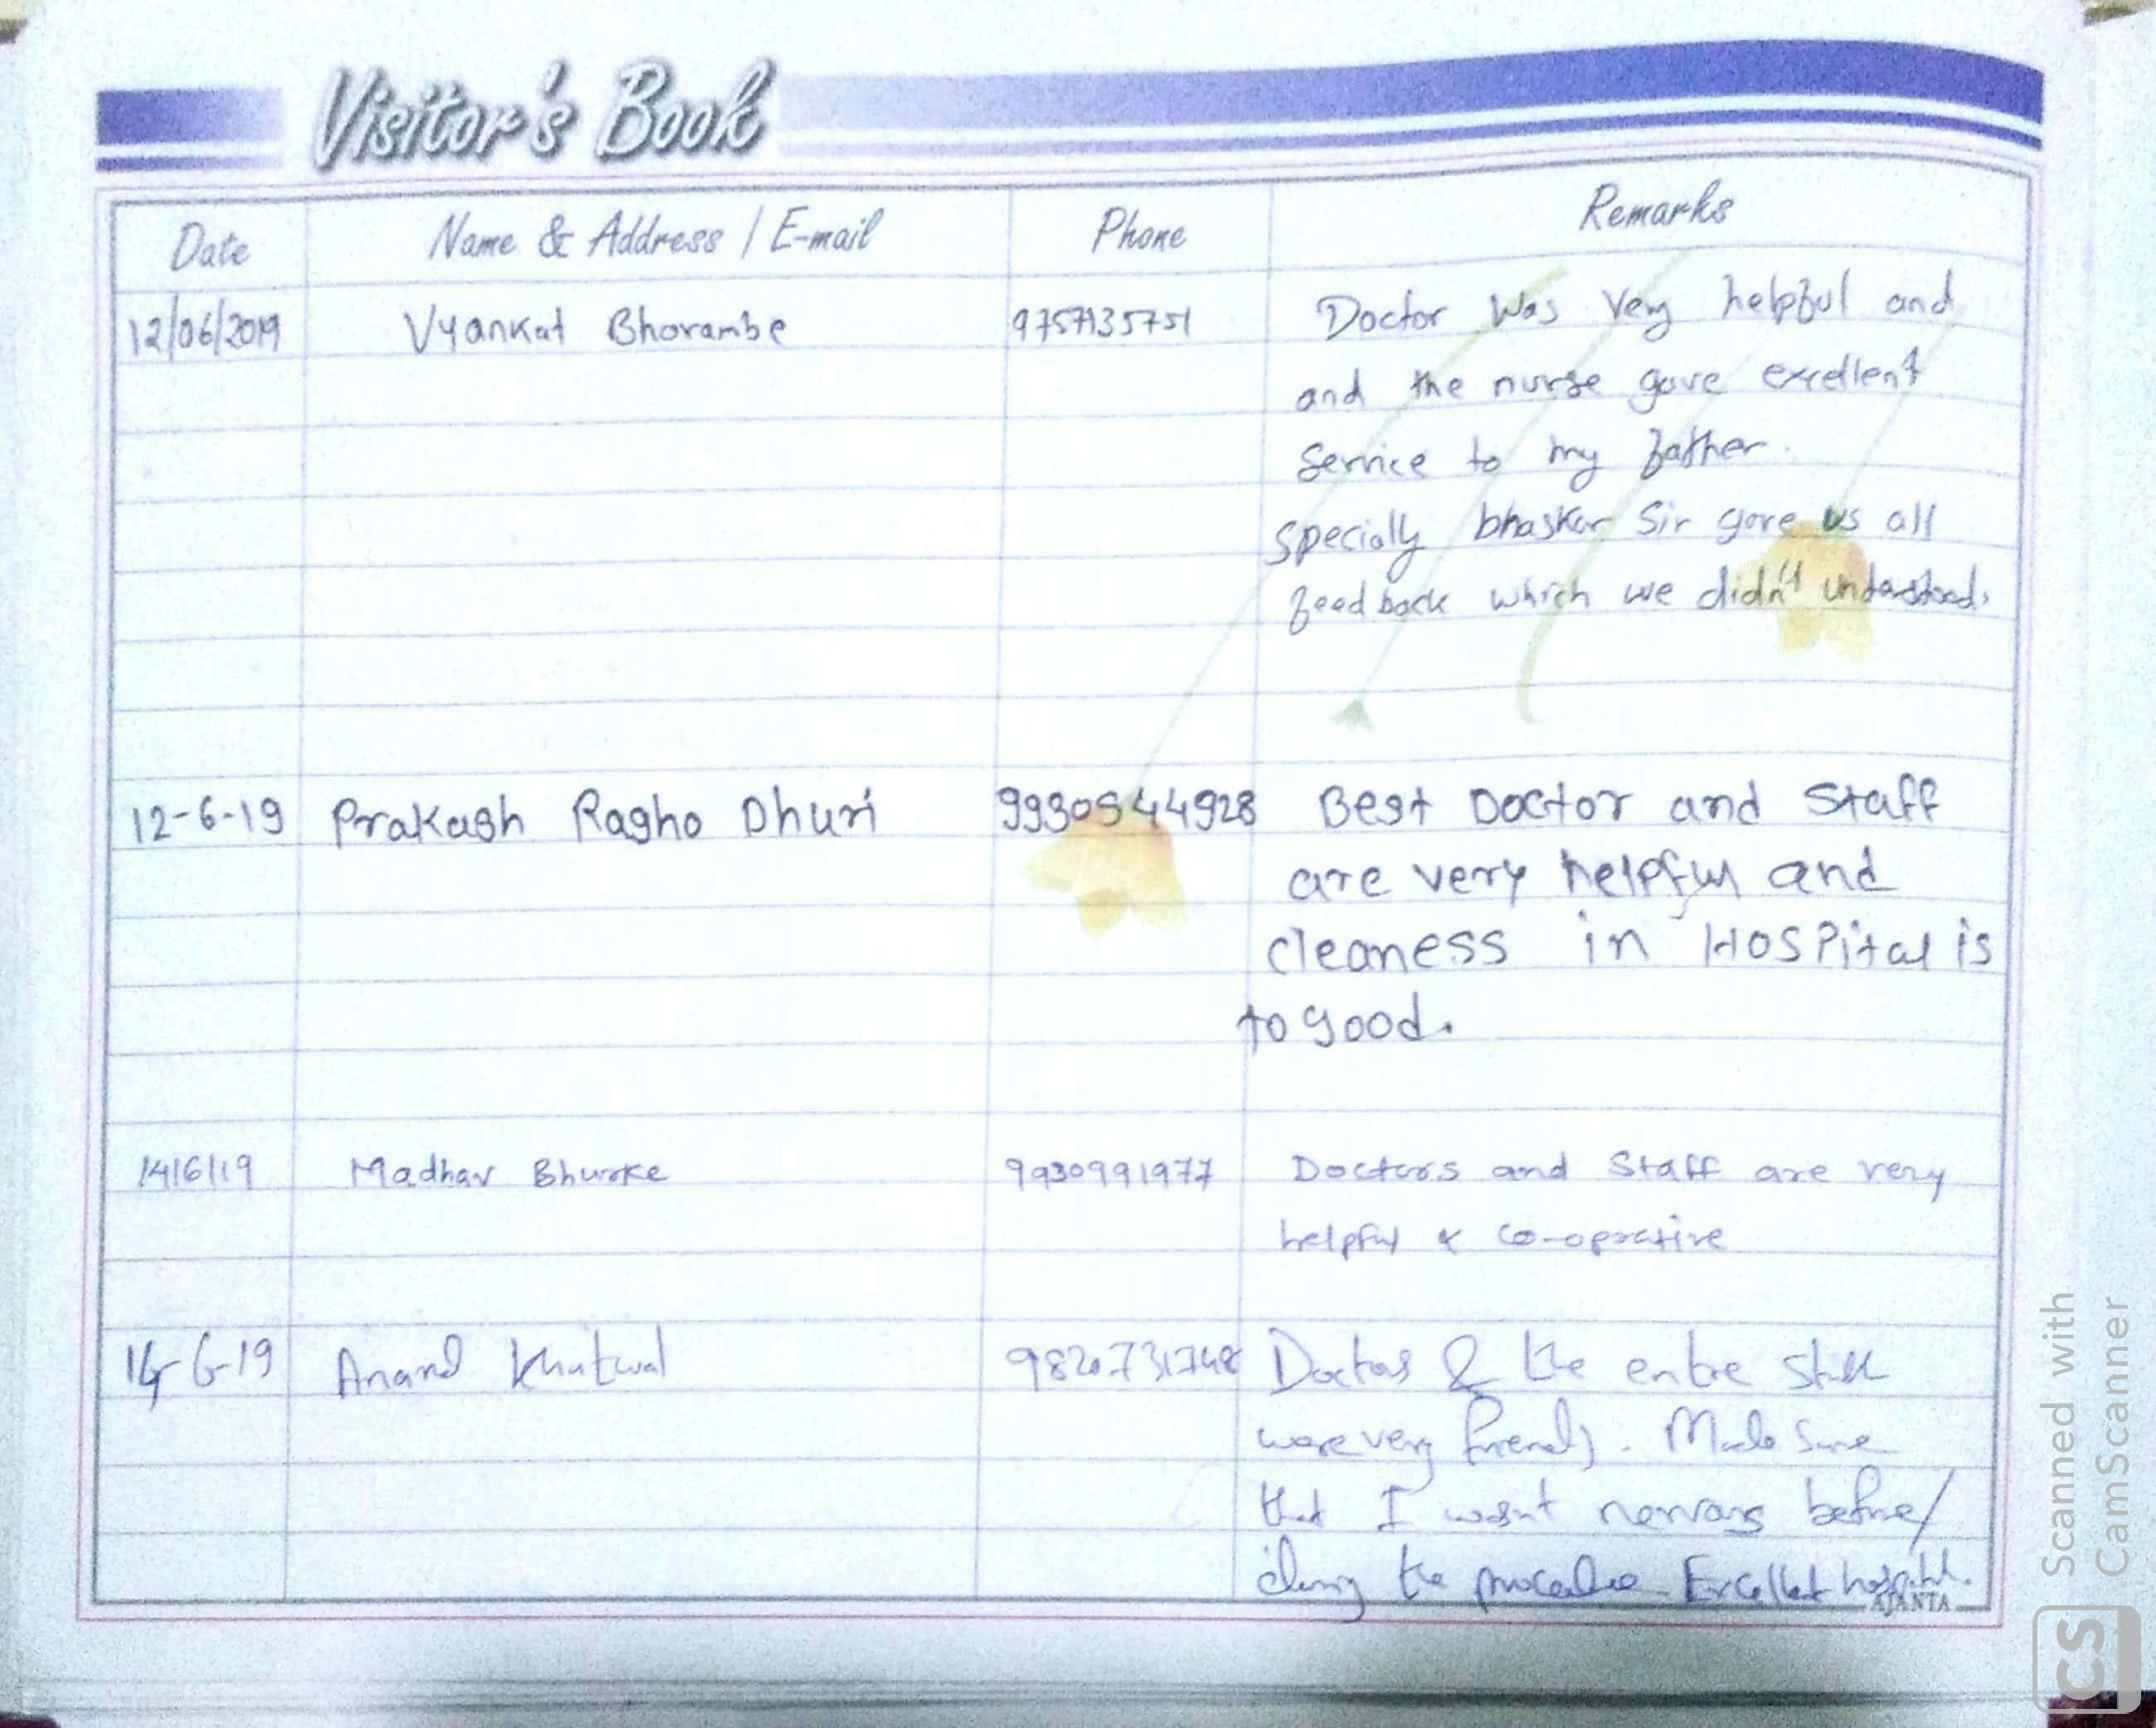 Visitor's Book
Date Name & Address / E-mail Phone Remarks
12/06/2019 Vyankat Bhorambe Doctor was very helpful and
and the nurse gave excellent
Service to my father.
specially bhaskar Sir gave us all
feedback which we didn't understood.
12-6-19 Prakash Ragho Dhuri 9930544928 Best Doctor and Staff
are very helpful and
cleaness in Hospital is
to good.
14/6/19 Madhav Bhurke 9930991977 Doctors and Staff are very
helpful & co-oprative
14-6-19 Anand Khutwal 9820731748 Doctors & the entire staff
were very friendly. Made sure
that I wasn't nervous before/
during the procedure. Excellent hospital.
AJANTA
Scanned with
CamScanner
CS